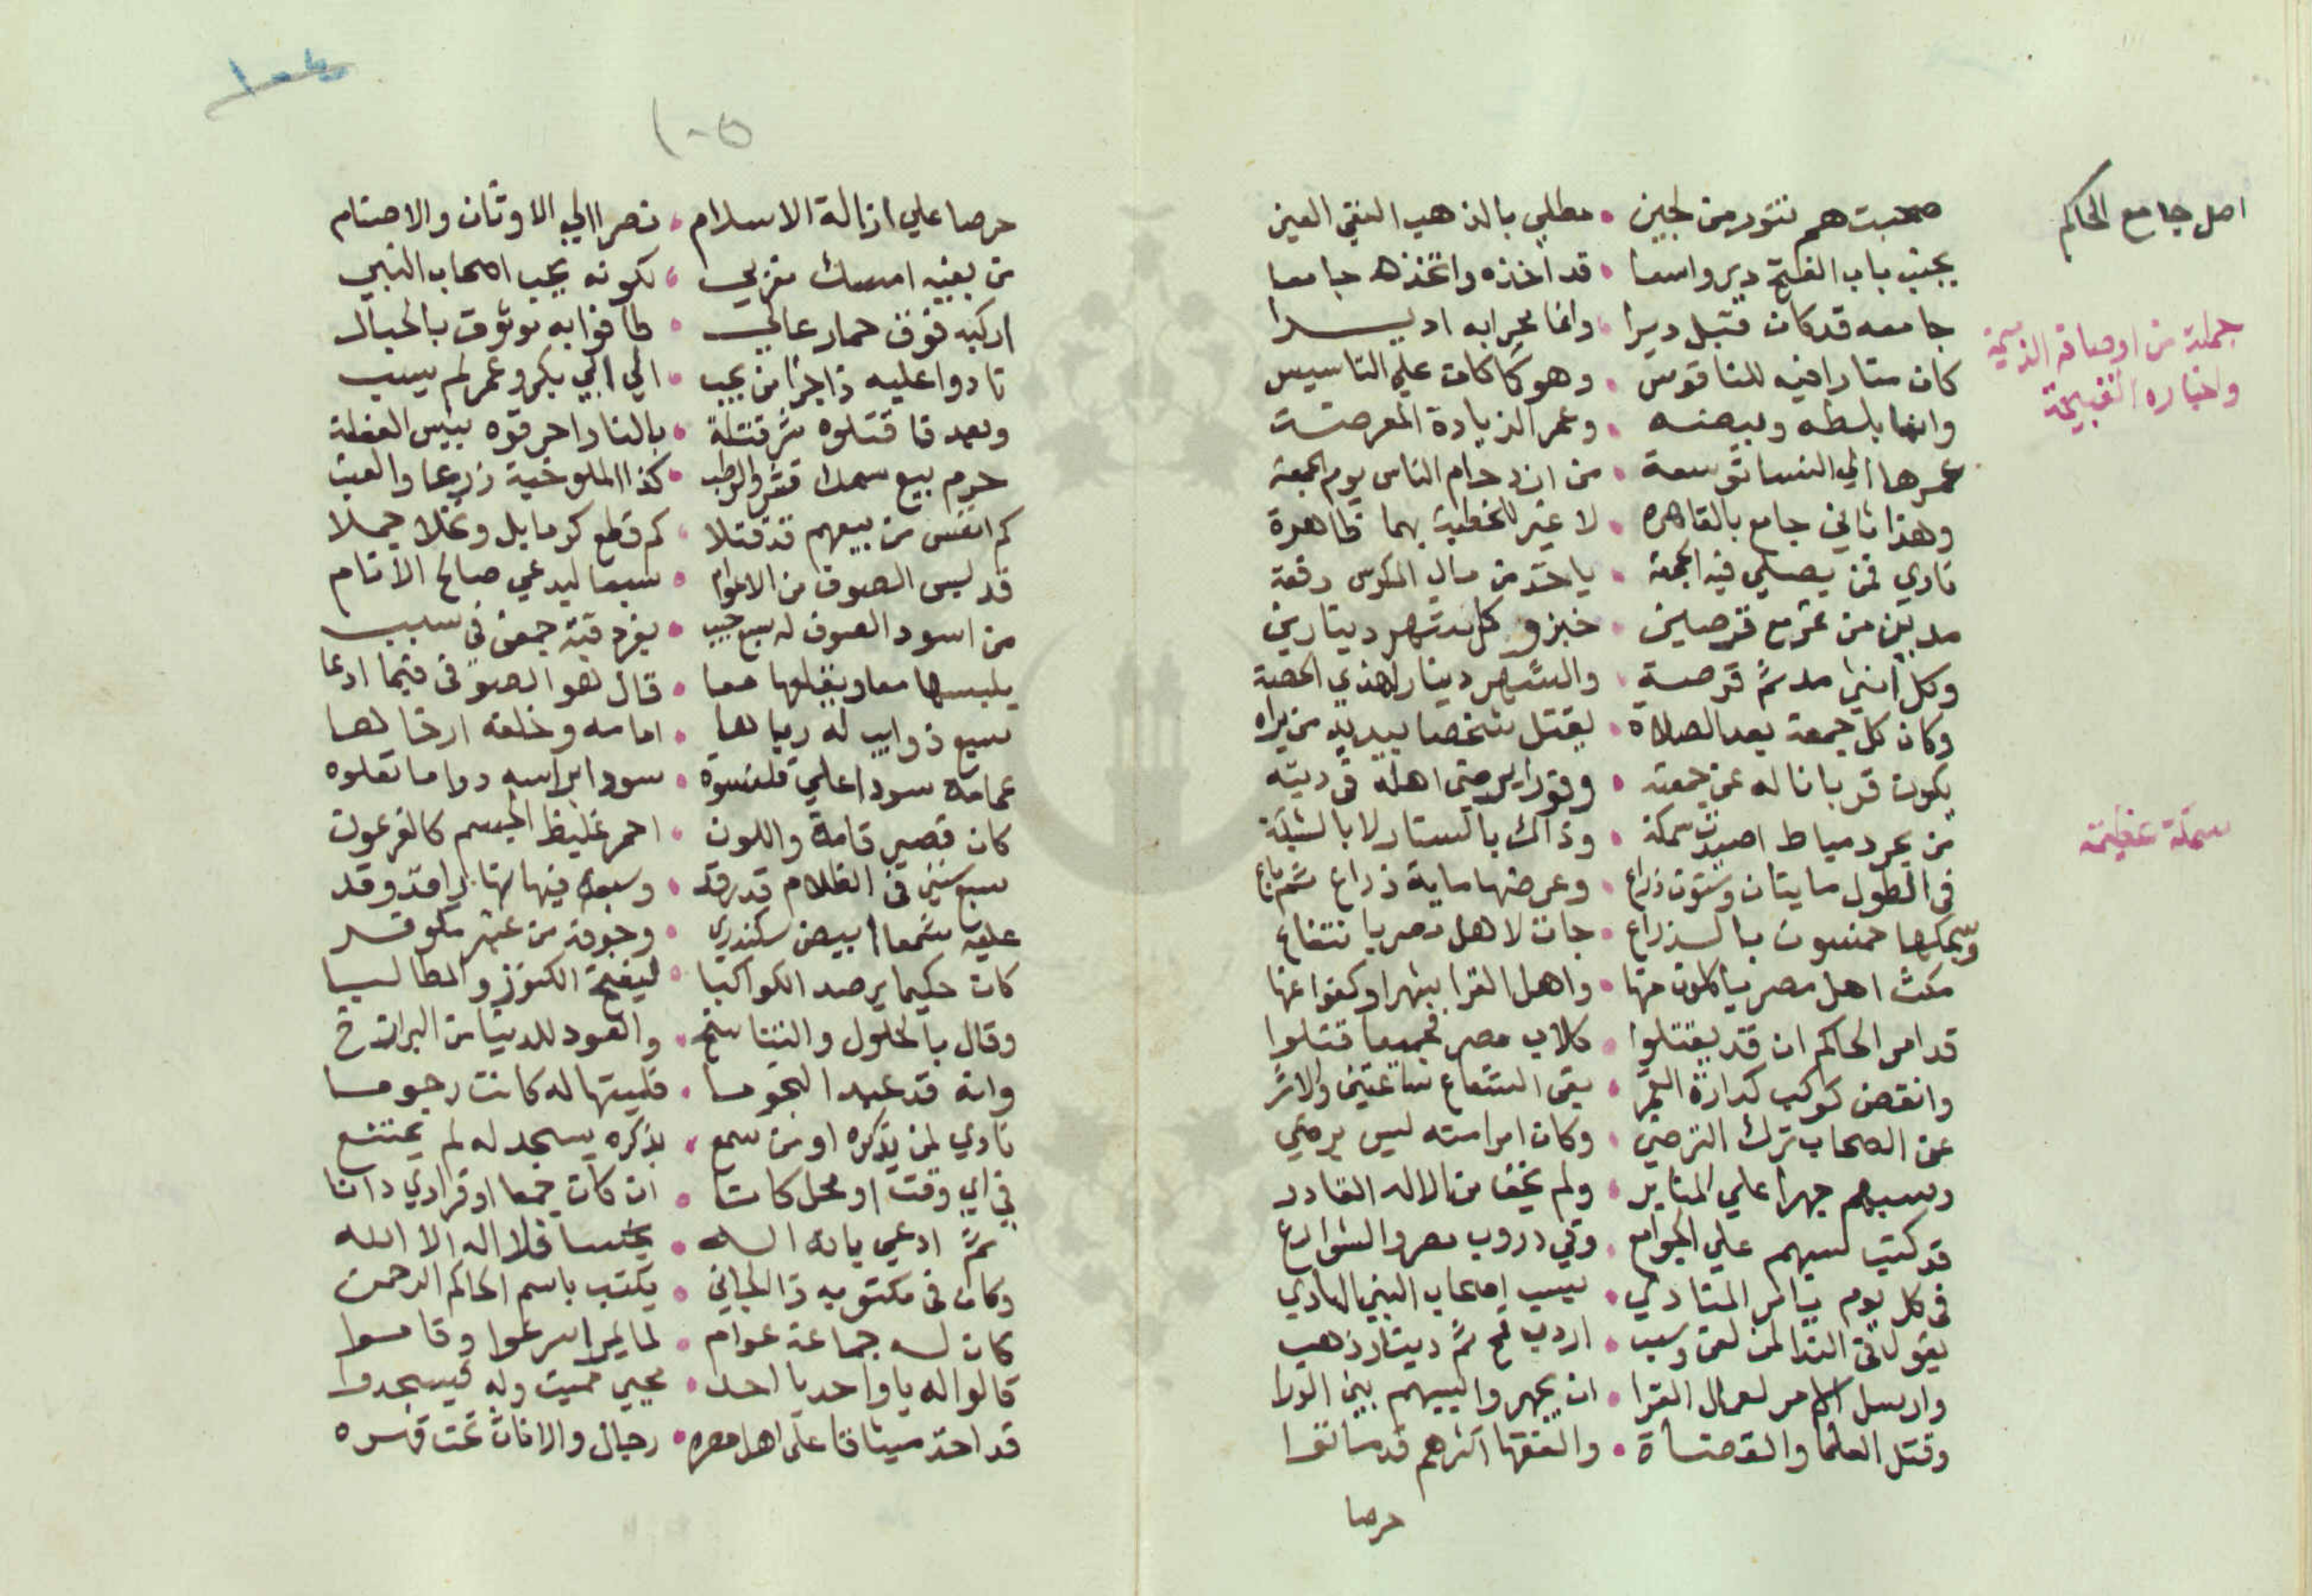 اصل جامع الحاكم
صحبتهم تنور من لجين • مطلي بالذهب النقي العين
بجنب باب الفتح دير واسعا • قد اخذه واتخذه جامعا
جملة من اوصافه الذميمة
واخباره القبيحة
جامعه قد كان قبل ديرا • وانما محرابه اديرا
كان منارا فيه للناقوس • وهو كما كان علي التاسيس
وانما بلطه وبيضه • وعمر الزيادة المعرضت
عمرها الي النسا توسعة • من ازدحام الناس يوم الجمعة
وهذا ثاني جامع بالقاهره • لا غير للخطبة بهما ظاهرة
نادي لمن يصلي فيه الجمعه • ياخذ من مال المكوس دفعة
مدين من قمح مع قرصين • خبز وكل شهر دينارين
وكل انثي مد ثم قرصة • والشهر دينار لهذي الحصة
وكان كل جمعة بعد الصلاة • يقتل شخصا بيديه من يراه
يكون قربانا له عن جمعته • وفورا يرضي اهله في ديته
سمكة عظيمة
من بحر دمياط اصيدت سمكة • وذاك بالستار لا بالشبكة
في الطول مايتان وستون ذراع • وعرضها ماية ذراع ثم باع
وسمكها خمسون بالذراع • جات لاهل مصر بانتفاع
مكث اهل مصر ياكلون منها • واهل القرا شهرا وكفوا عنها
قد امر الحاكم ان قد يقتلوا • كلاب مصر فجميعا قتلوا
وانقض كوكب كدارة القمر • بقي الشعاع ساعتين والاثر
عن الصحاب ترك الترضي • وكان امر استه ليس يرضي
وسبهم جهرا علي المنابر • ولم يخف من الاله القادر
قد كتب لسبهم علي الجوامع • وفي دروب مصر والشوارع
في كل يوم يامر المنادي • بسب اصحاب النبي الهادي
يقول في الندا لمن لعن وسب • اردب قمح ثم دينار ذهب
وارسل الامر لعمال القرا • ان يجهروا بسبهم بين الورا
وقتل العلما والقضاة • والفقها اكثرهم قد ماتوا
حرصا
١٠٥
حرصا علي ازالة الاسلام • نصرا الي الاوثان والاصنام
من بغيه امسك مغربي • لكونه يحب اصحاب النبي
اركبه فوق حمار عالي • طافوا به موثوق بالحبال
نادوا عليه ذا جزا من يحب • الي ابي بكر وعمر لم يسب
وبعد ذا قتلوه شر قتلة • بالنار احرقوه بيس الفعلة
حرم بيع سمك قشر والرطب • كذا الملوخية زرعا والعنب
كم انفس من بيعهم قد قتلا • كم قطع كرما بل ونخلا حملا
قد لبس الصوف من الاعوام • سبعا ليدعي صالح الانام
من اسود الصوف له سبع جبب • بفرد قبة جمعن في سبب
يلبسها معا ويقلعها معا • قال هو الصوفي فيما ادعا
سبع ذوايب له رباها • امامه وخلفه ارخاها
عمامة سودا علي قلنسوة • سودا براسه دواما تعلوه
كان قصير قامة واللون • احمر غليظ الجسم كالفرعون
سبع سنين في الظلام قد رقد • وسبعة فيها نهارا قد وقد
عليه شمعا ابيض سكندري •
كان حكيما يرصد الكواكبا • ليفتح الكنوز والمطالبا
وقال بالحلول والتناسخ • والعود للدنيا من البرازخ
وانه قد عبد النجوما • فليتها له كانت رجوما
نادي لمن يذكره او من سمع • بذكره يسجد له لم يمتنع
في اي وقت او محل كانا • ان كان جمعا او فرادي دانا
ثم ادعي بانه الله • يخسا فلا اله الا الله
وكان في مكتوبه ذا الجاني • يكتب باسم الحاكم الرحمن
كان له جماعة عوام • لما يمر اسرعوا وقاموا
قالوا له يا واحد يا احد • محيي مميت وله فيسجدوا
قد اخذ ميثاقا علي اهل مصره • رجال والاناث تحت قهره